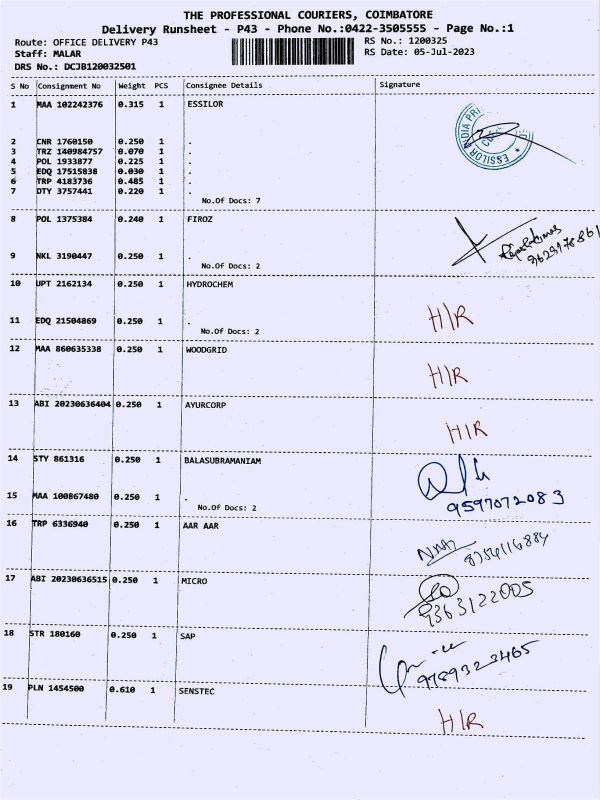 THE PROFESSIONAL COURIERS, COIMBATORE
Delivery Runsheet - P43 - Phone No.:0422-3505555 - Page No.:1
Route: OFFICE DELIVERY P43 RS No.: 1200325
Staff: MALAR RS Date: 05-Jul-2023
DRS No.: DCJB120032501
S No Consignment No Weight PCS Consignee Details Signature
1 MAA 102242376 0.315 1 ESSILOR
ESSILOR INDIA PRI
2 CNR 1760150 0.250 1 .
3 TRZ 140984757 0.070 1 .
4 POL 1933877 0.225 1 .
5 EDQ 17515838 0.030 1 .
6 TRP 4183736 0.485 1 .
7 DTY 3757441 0.220 1 .
No.Of Docs: 7
8 POL 1375384 0.240 1 FIROZ
9 NKL 3190447 0.250 1 .
No.Of Docs: 2
10 UPT 2162134 0.250 1 HYDROCHEM
11 EDQ 21504869 0.250 1 . H/R
No.Of Docs: 2
12 MAA 860635338 0.250 1 WOODGRID
H/R
13 ABI 20230636404 0.250 1 AYURCORP
H/R
14 STY 861316 0.250 1 BALASUBRAMANIAM
15 MAA 100867480 0.250 1 . 9597072083
No.Of Docs: 2
16 TRP 6336940 0.250 1 AAR AAR
8754116884
17 ABI 20230636515 0.250 1 MICRO
9363122005
18 STR 180160 0.250 1 SAP
9789323465
19 PLN 1454500 0.610 1 SENSTEC
H/R